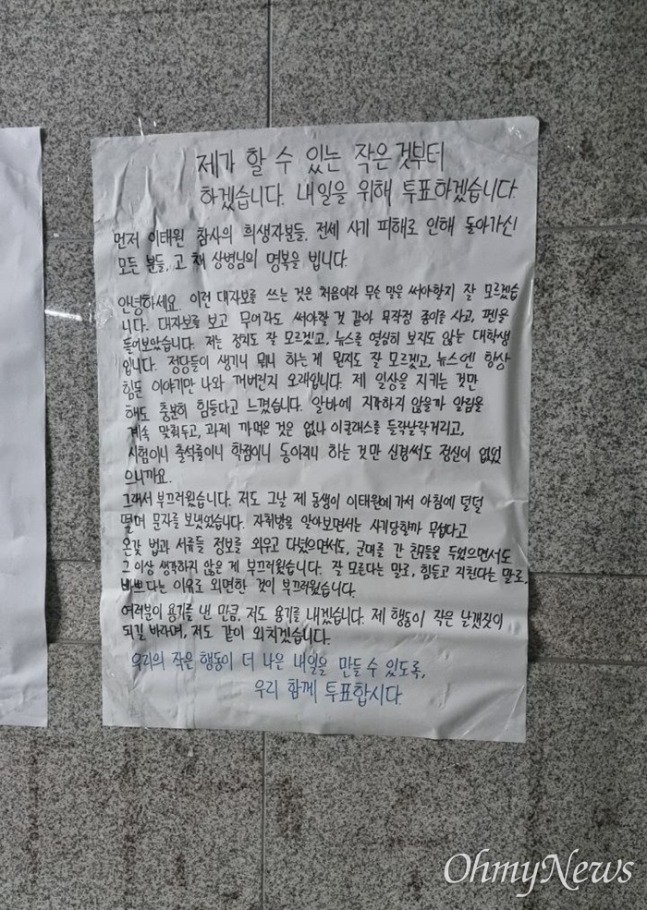 제가 할 수 있는 작은 것부터
하겠습니다. 내일을 위해 투표하겠습니다.
먼저 이태원 참사의 희생자분들, 전세 사기 피해로 인해 돌아가신
모든 분들, 고 채 상병님의 명복을 빕니다.
안녕하세요 이런 대자보를 쓰는 것은 처음이라 무슨 말을 써야할지 잘 모르겠습
니다. 대자보를 보고 무어라도 써야할 것 같아 무작정 종이를 사고, 펜을
들어보았습니다. 저는 정치도 잘 모르겠고, 뉴스를 열심히 보지도 않는 대학생
입니다. 정당들이 생기니 뭐니 하는 게 뭔지도 잘 모르겠고, 뉴스엔 항상
힘든 이야기만 나와 꺼버린지 오래입니다. 제 일상을 지키는 것만
해도 충분히 힘들다고 느꼈습니다. 알바에 지각하지 않을까 알람을
계속 맞춰두고, 과제 까먹은 것은 없나 이클래스를 들락날락거리고,
시험이니 출석률이니 학점이니 동아리니 하는 것만 신경써도 정신이 없었
으니까요.
그래서 부끄러웠습니다. 저도 그날 제 동생이 이태원에 가서 아침에 덜덜
떨며 문자를 보냈었습니다. 자취방을 알아보면서는 사기당할까 무섭다고
온갖 법과 서류들 정보를 외우고 다녔으면서도, 군대를 간 친구들을 두었으면서도
그 이상 생각하지 않은 제 부끄러웠습니다. 잘 모른다는 말로, 힘들고 지친다는 말로,
바쁘다는 이유로 외면한 것이 부끄러웠습니다.
여러분이 용기를 낸 만큼, 저도 용기를 내겠습니다. 제 행동이 작은 날갯짓이
되길 바라며, 저도 같이 외치겠습니다.
우리의 작은 행동이 더 나은 내일을 만들 수 있도록,
우리 함께 투표합시다.
OhmyNews